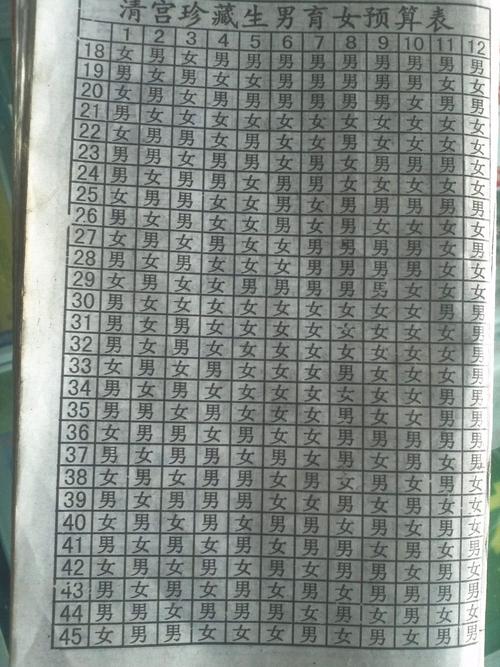 清宫珍藏生男育女预算表
1 2 3 4 5 6 7 8 9 10 11 12
18 女 男 女 男 男 男 男 男 男 男 男 男
19 男 女 男 女 女 男 男 男 男 男 女 女
20 女 男 女 男 男 男 男 男 男 女 男 男
21 男 女 女 女 女 女 女 女 女 女 女 女
22 女 男 男 女 男 女 女 男 女 女 女 女
23 男 男 女 男 男 女 男 女 男 男 男 女
24 男 女 男 男 女 男 男 女 女 女 女 女
25 女 男 男 女 女 男 女 男 男 男 男 男
26 男 女 男 女 女 男 女 男 女 女 女 女
27 女 男 女 男 女 女 男 男 男 男 女 男
28 男 女 男 女 女 女 男 男 男 男 女 女
29 女 男 女 女 男 男 男 男 男 女 女 女
30 男 女 女 女 女 女 女 女 女 女 男 男
31 男 女 男 女 女 女 女 女 女 女 女 男
32 男 女 男 女 女 女 女 女 女 女 女 男
33 女 男 女 男 女 女 女 男 女 女 女 男
34 男 女 男 女 女 女 女 女 女 女 男 男
35 男 男 女 男 女 女 女 男 女 女 男 男
36 女 男 男 女 男 女 女 男 男 男 男 男
37 男 女 男 男 女 男 女 男 女 男 女 男
38 女 男 女 男 男 女 男 女 男 女 男 女
39 男 女 男 男 男 女 女 男 女 男 女 女
40 女 男 女 男 女 男 男 女 男 女 男 女
41 男 女 男 女 男 女 男 男 女 男 女 男
42 女 男 女 男 女 男 女 男 男 女 男 女
43 男 女 男 女 男 女 男 女 男 男 男 男
44 男 男 女 男 男 男 女 男 女 男 女 女
45 女 男 男 女 女 女 男 女 男 女 男 男